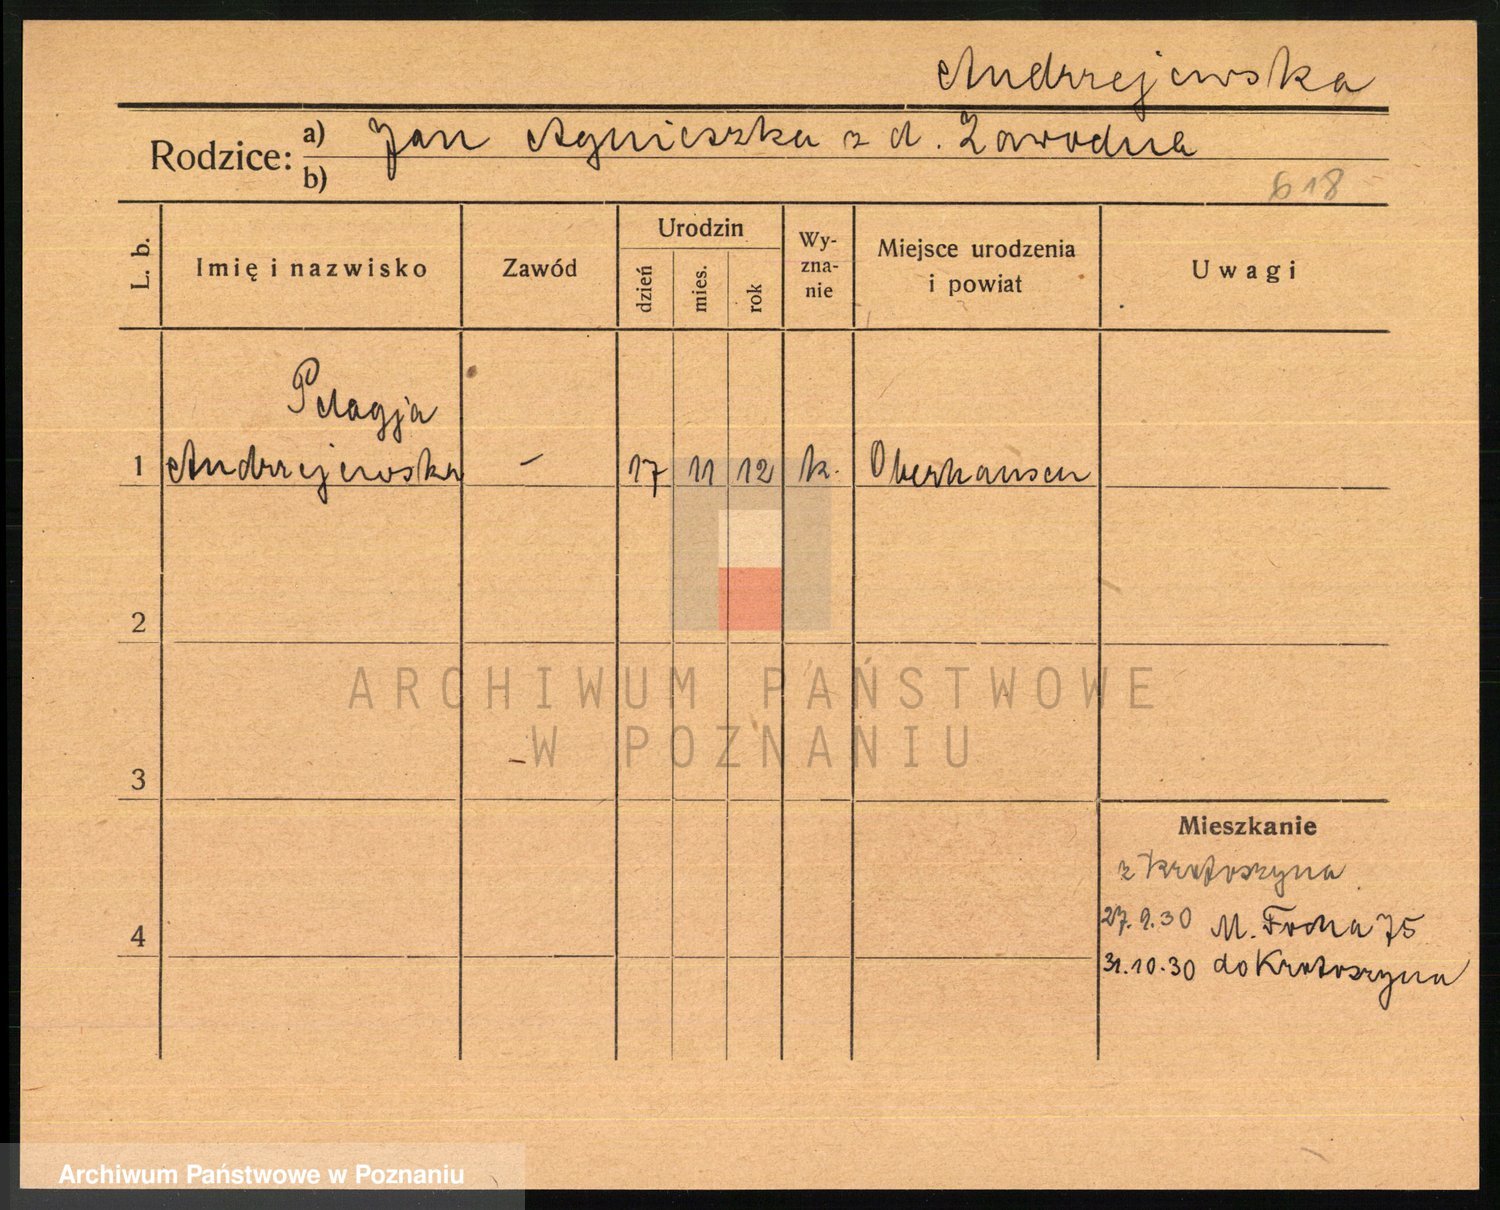 Andrzejewska
Rodzice: a) Jan Agnieszka z d. Zawodna
b)
618
L. b.
Imię i nazwisko
Zawód
Urodzin
dzień
mies.
rok
Wy-
zna-
nie
Miejsce urodzenia
i powiat
Uwagi
Pelagja
1 Andrzejewska – 17 11 12 k. Oberhausen
2
3
4
Mieszkanie
z Krotoszyna
27.9.30 M. Focha 75
31.10.30 do Krotoszyna
ARCHIWUM PAŃSTWOWE
W POZNANIU
Archiwum Państwowe w Poznaniu